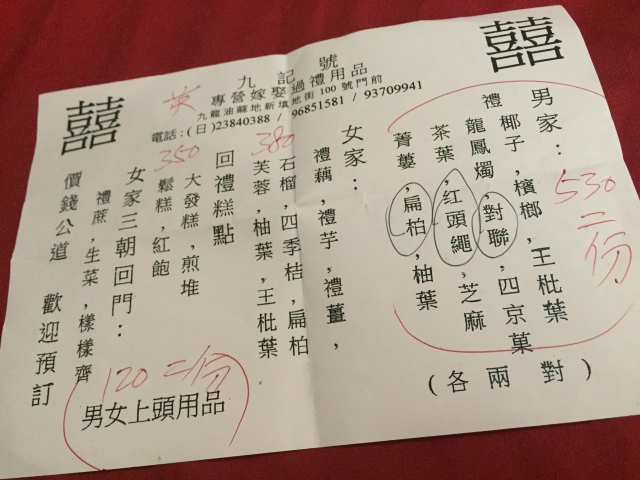 囍
囍
九記號
專營嫁娶過禮用品
九龍油蔴地新填地街100號門前
電話：(日)23840388 / 96851581 / 93709941
男家：
禮椰子，檳榔，王枇葉
龍鳳燭，對聯，四京菓
茶葉，红頭繩，芝麻
菁蔞，扁柏，柚葉
(各兩對)
530
二份
女家：
禮藕，禮芋，禮薑，
石榴，四季桔，扁柏
芙蓉，柚葉，王枇葉
380
回禮糕點
大發糕，煎堆
鬆糕，紅飽
350
女家三朝回門：
禮蔗，生菜，樣樣齊
價錢公道 歡迎預訂
120 二份
男女上頭用品